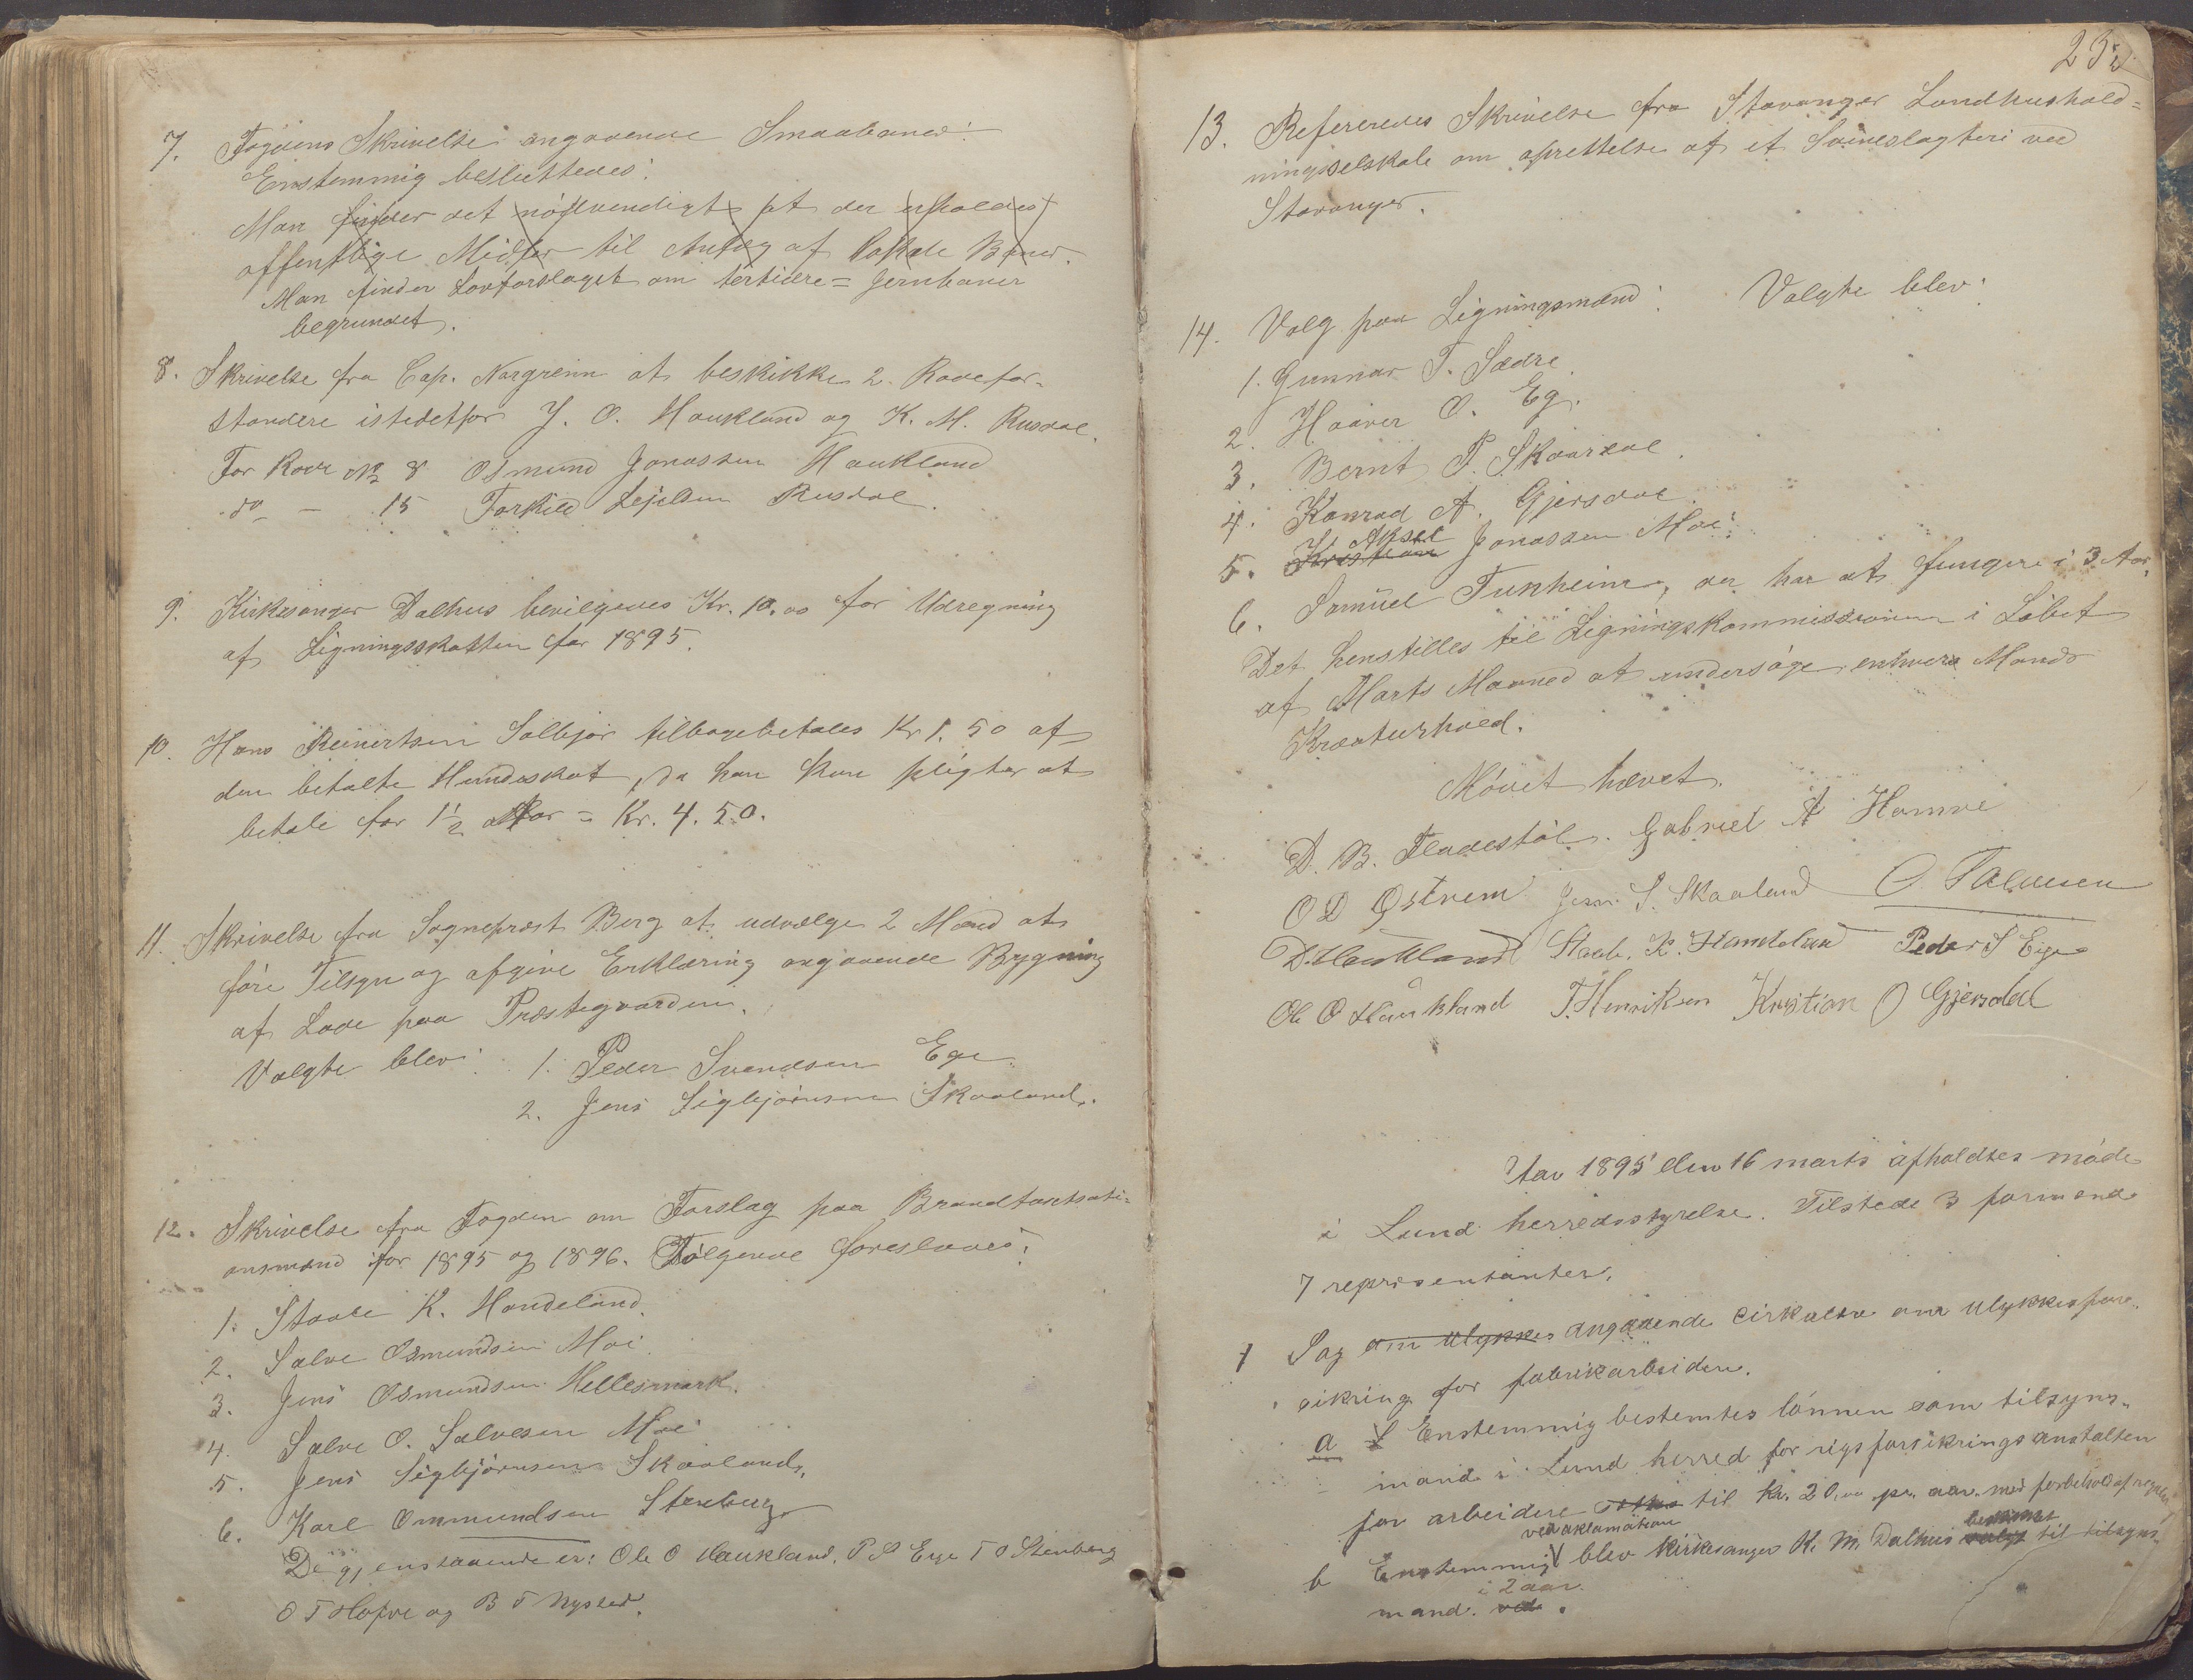 7. Fogdens Skrivelse angaaende Smaabaner:
Enstemmig besluttedes:
Man finder det nödvendigt at der erholdes
offentlige Midler til Anlæg af lokale Baner.
Man finder Lovforslaget om tertiære = Jernbaner
begrundet.
8. Skrivelse fra Cap. Norgrenn at beskikke 2 Rodefor-
standere istedetfor J. O. Haukland og K. M. Rusdal.
For Rode № 8 Osmund Jonassen Haukland
do — 15 Torkild Rusdal.
9. Kirkesanger Dalhus bevilgedes Kr. 10.00 for Udregning
af Ligningsskatten for 1895.
10. Hans Reinertsen Solbjör tilbagebetales Kr 1.50 af
den betalte Hundeskat, da han kun pligter at
betale for 1½ Aar = Kr. 4.50.
11. Skrivelse fra Sogneprest Berg at udvælge 2 Mænd at
före Tilsyn og afgive Erklæring angaaende Bygning
af Lade paa Præstegaarden.
Valgte blev: 1. Peder Svendsen Ege
2. Jens Sigbjörnsen Skaaland.
12. Skrivelse fra Fogden om Forslag paa Brandtaxtsati-
onsmænd for 1895 og 1896. Fölgende foresloges:
1. Staale K. Handeland.
2. Salve Osmundsen Moi.
3. Jens Osmundsen Hellesmark.
4. Salve O. Salvesen Moi
5. Jens Sigbjörnsen Skaaland.
6. Karl Ommundsen Stenberg
De gjenstaaende er: Ole O Haukland, P S Ege T O Stenberg
O T Hofve og B T Nysted.
232
13. Refereredes Skrivelse fra Stavanger Landhushold=
ningsselskab om oprettelse af et Svineslagteri ved
Stavanger.
14. Valg paa Ligningsmænd: Valgte blev:
1. Gunnar T. Sædre.
2. Haaver O. Eg.
3. Bernt P. Skaardal.
4. Konrad A. Gjersdal.
5. Kristian Aksel Jonassen Moi:
6. Samuel Tunheim, der har at fungere i 3 Aar.
Det henstilles til Ligningskommissionen i Löbet
af Marts Maaned at undersöge enhvers Mands
Kreaturhold.
Mödet hævet.
D. B. Fladestöl. Gabriel A Hamre
O D Østrem Jens S. Skaaland O Salvesen
D. Haukland Staale. K. Handeland Peder S Ege
Ole O Haukland T. Henriksen Kristian O Gjersdal
Aar 1895 den 16 marts afholdtes möde
i Lund herredsstyrelse. Tilstede 3 formænd
7 repræsentanter.
1 Sag om ulykkes angaaende cirkulære om ulykkesfor-
sikring for fabrikarbeidere.
a Enstemmig bestemtes lönnen som tilsyns-
mand i Lund herred for rigsforsikringsanstalten
for arbeidere til kr. 20,00 pr. aar. med forbehold af
b Enstemmig ved aklamation blev kirkesanger K. M. Dalhus valgt bestemt til tilsyns-
mand. ved i 2 aar.